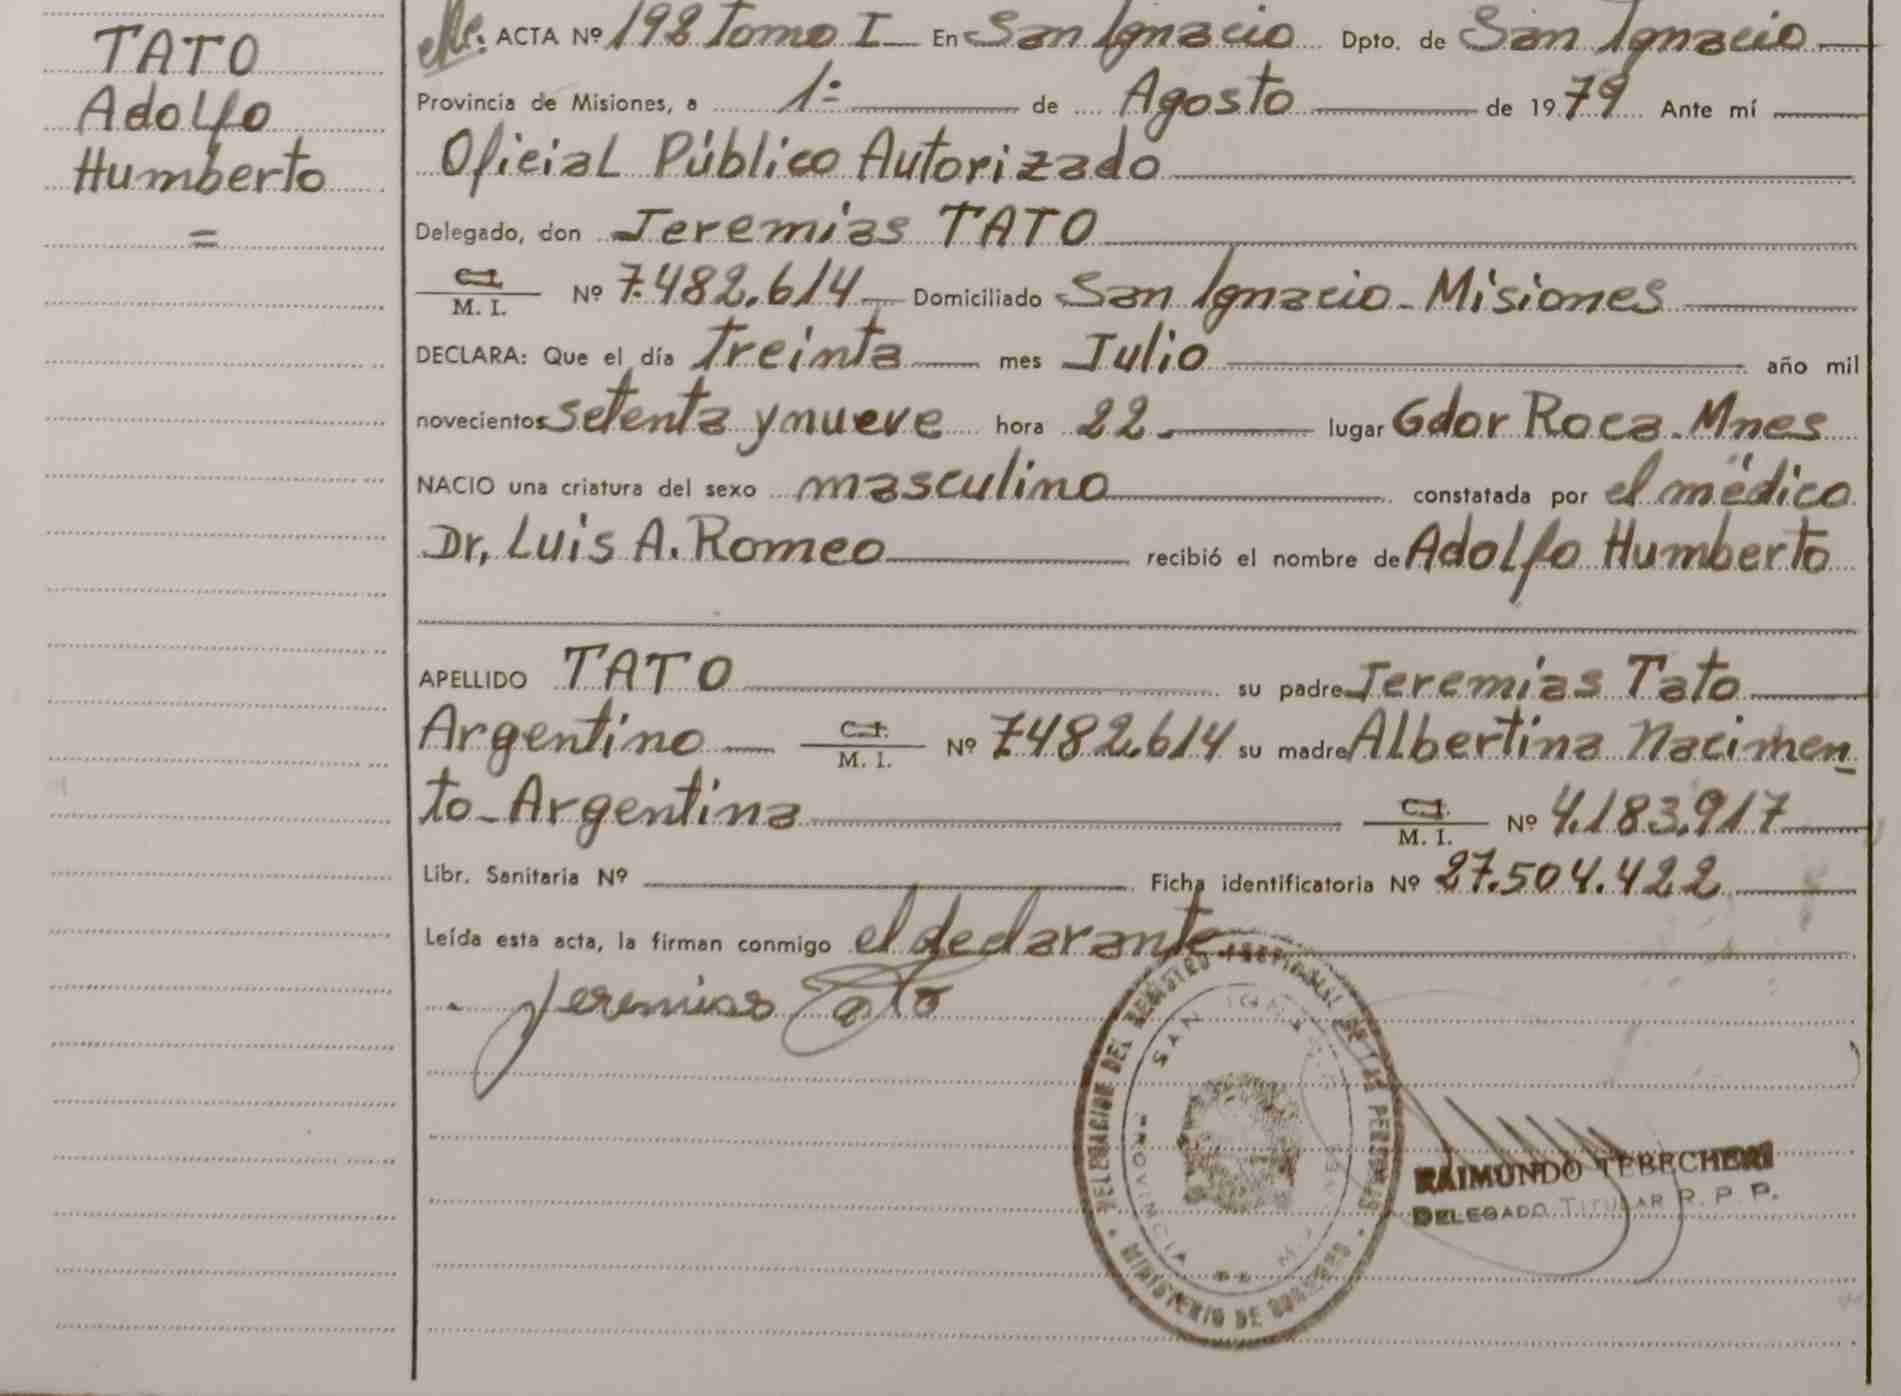 TATO
Adolfo
Humberto
=
ACTA Nº 198 Tomo I En San Ignacio Dpto. de San Ignacio
Provincia de Misiones, a 1º de Agosto de 1979 Ante mí
Oficial Público Autorizado
Delegado, don Jeremias TATO
C.I.
M. I. Nº 7.482.614 Domiciliado San Ignacio - Misiones
DECLARA: Que el día Treinta mes Julio año mil
novecientos setenta y nueve hora 22 lugar Gdor Roca. Mnes
NACIO una criatura del sexo masculino constatada por el médico
Dr, Luis A. Romeo recibió el nombre de Adolfo Humberto
APELLIDO TATO su padre Jeremias Tato
Argentino C.I. M. I. Nº 7482.614 su madre Albertina Nacimen-
to - Argentina C.I. M. I. Nº 4.183.917
Libr. Sanitaria Nº Ficha identificatoria Nº 27.504.422
Leída esta acta, la firman conmigo el declarante
Jeremias Tato
DELEGACION DEL REGISTRO PROVINCIAL DE LAS PERSONAS
SAN IGNACIO
PROVINCIA DE
MINISTERIO DE GOBIERNO
RAIMUNDO TEBECHERI
DELEGADO TITULAR R. P. P.